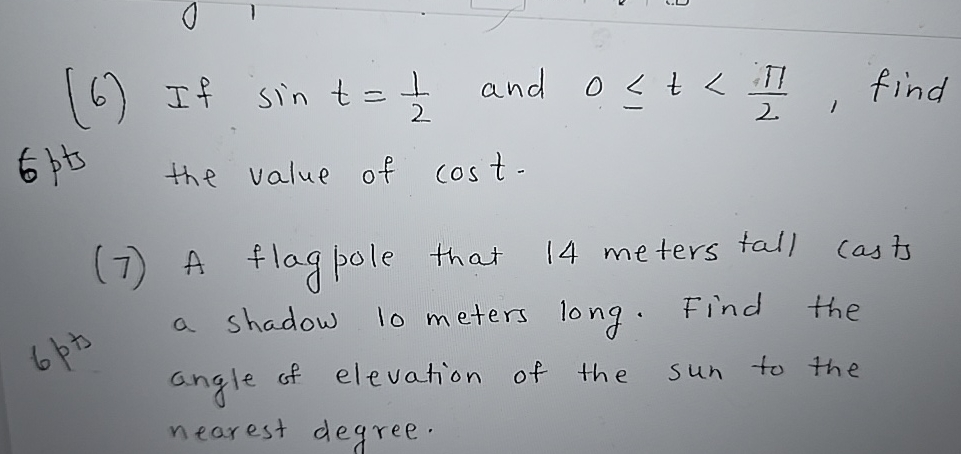 (6) If sin t = 1/2 and 0 ≤ t < π/2 , find
6 pts the value of cos t.
(7) A flagpole that 14 meters tall casts
a shadow 10 meters long. Find the
6 pts angle of elevation of the sun to the
nearest degree.